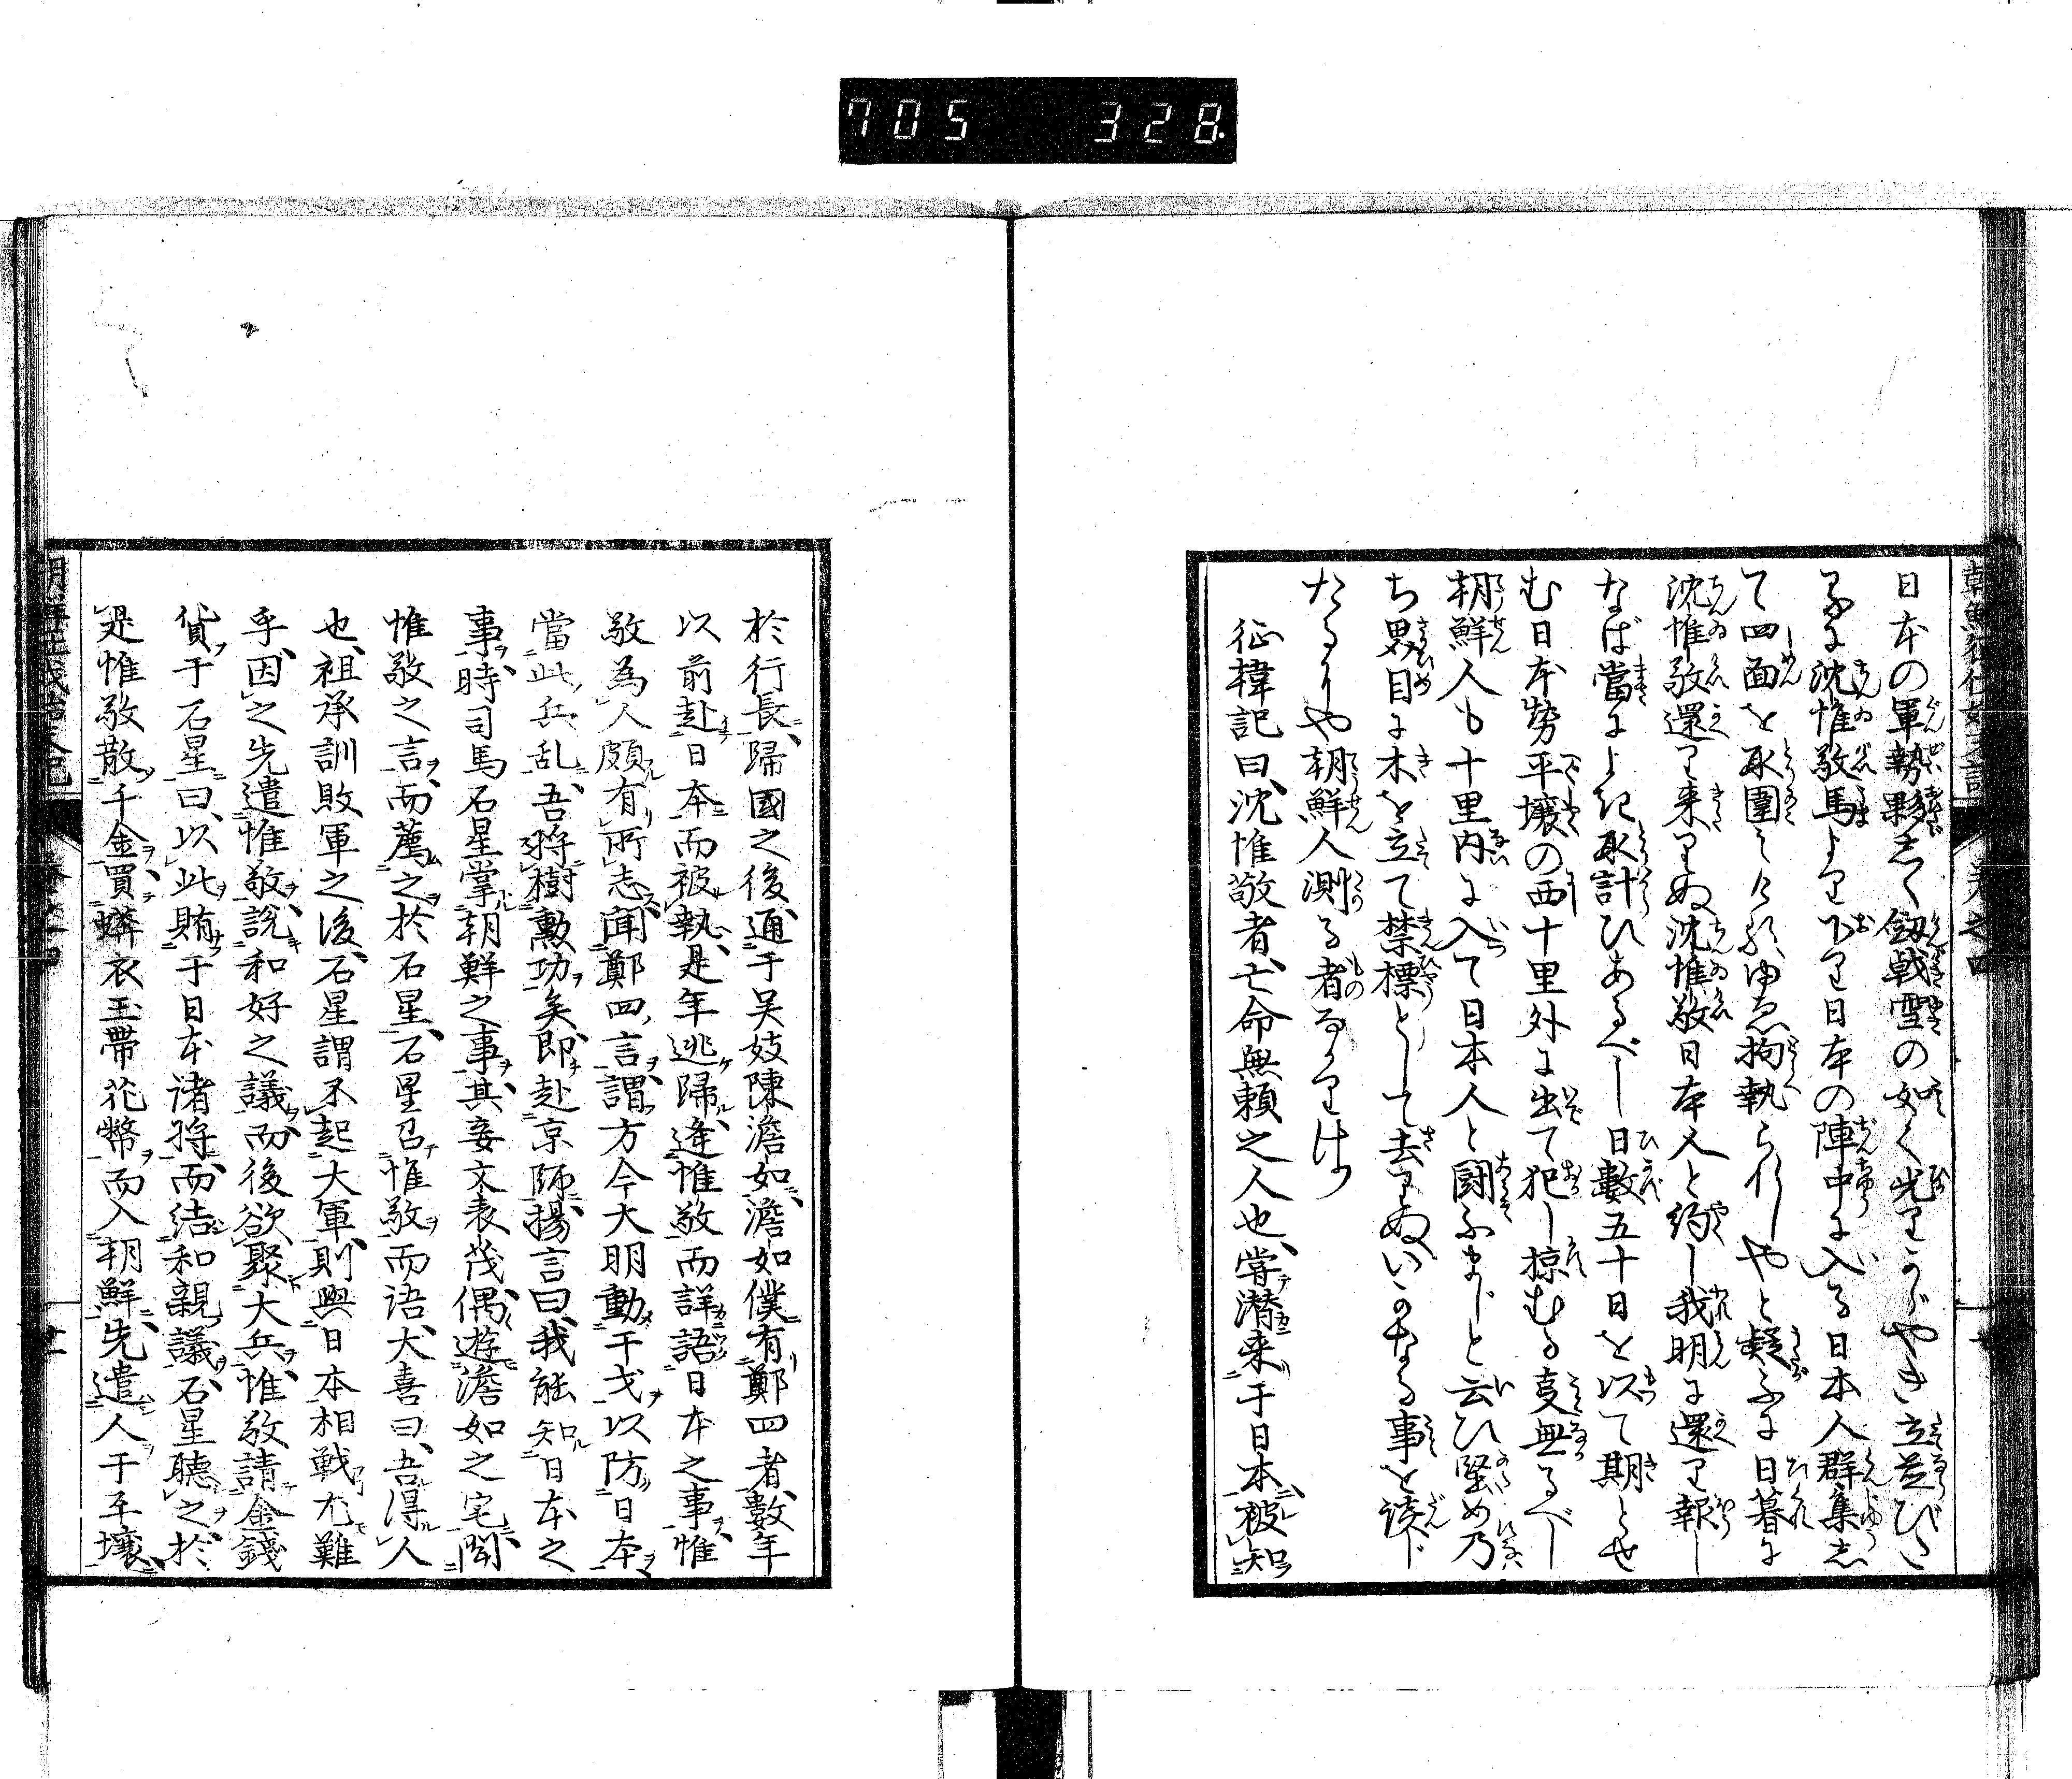 705 328.
朝鮮征伐始末記
巻之四
日本の軍勢夥しく劔戟雪の如く光りかゞやき立並びし
るに沈惟敬馬より下り日本の陣中に入る日本人群集し
て四面を取圍みけるゆゑ拘執られしやと疑ふに日暮に
沈惟敬還り来りぬ沈惟敬日本人と約し我明に還り報し
なば當によき取計ひあるべし日數五十日を以て期とせ
む日本勢平壤の西十里外に出て犯し掠むる事無るべし
朝鮮人も十里内に入て日本人と闘ふまじと云ひ堅め乃
ち界目に木を立て禁標として去りぬいかなる事を談じ
たるりや朝鮮人測る者なかりけり
征韓記曰、沈惟敬者、亡命無頼之人也、嘗潜来于日本、被知
於行長、歸國之後、通于吴妓陳澹如、澹如僕有鄭四者、數年
以前赴日本而被執、是年逃歸、逢惟敬而詳語日本之事、惟
敬為人頗有所志、聞鄭四言、謂方今大明動干戈以防日本
當此兵乱、吾將樹勲功矣、即赴京師、揚言曰、我能知日本之
事、時司馬石星掌朝鮮之事、其妾父袁茂、偶遊澹如之宅、聞
惟敬之言、而薦之於石星、石星召惟敬而语、大喜曰、吾得人
也、祖承訓敗軍之後、石星謂不起大軍、則與日本相戦尤難
乎、因之先遣惟敬、說和好之議、而後欲聚大兵、惟敬請金錢
貨于石星曰、以此賄于日本诸将、而结和親議、石星聽之、於
是惟敬散千金買蟒衣玉帶花幣、而入朝鮮、先遣人于平壤、